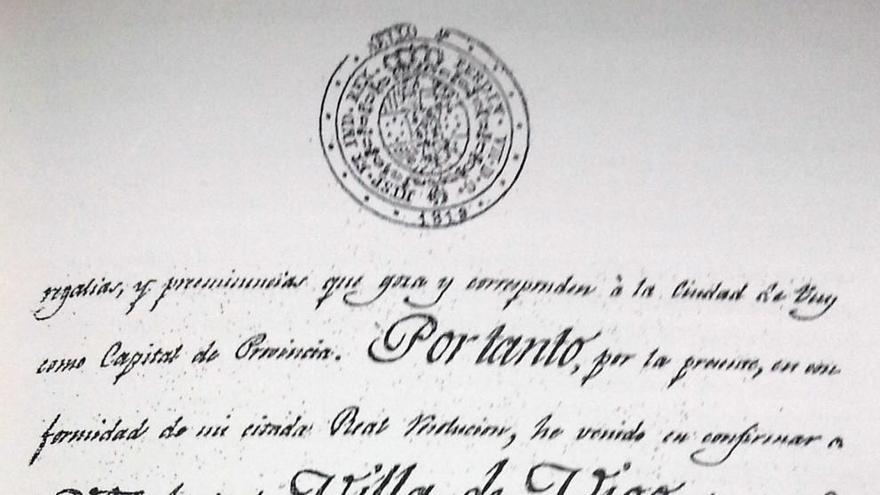 SELLO 4º
FERDIN. VII. D. G. HISP. ET IND. REX.
1819
regalias, y preminencias que goza y corresponden à la Ciudad de Tuy
como Capital de Provincia. Por tanto, por la presente, en con
formidad de mi citada Real resolucion, he venido en confirmar a
Villa de Vigo